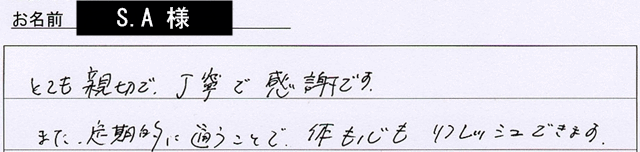 お名前 S.A 様
とても親切で、丁寧で感謝です。
また、定期的に通うことで、体も心もリフレッシュできます。